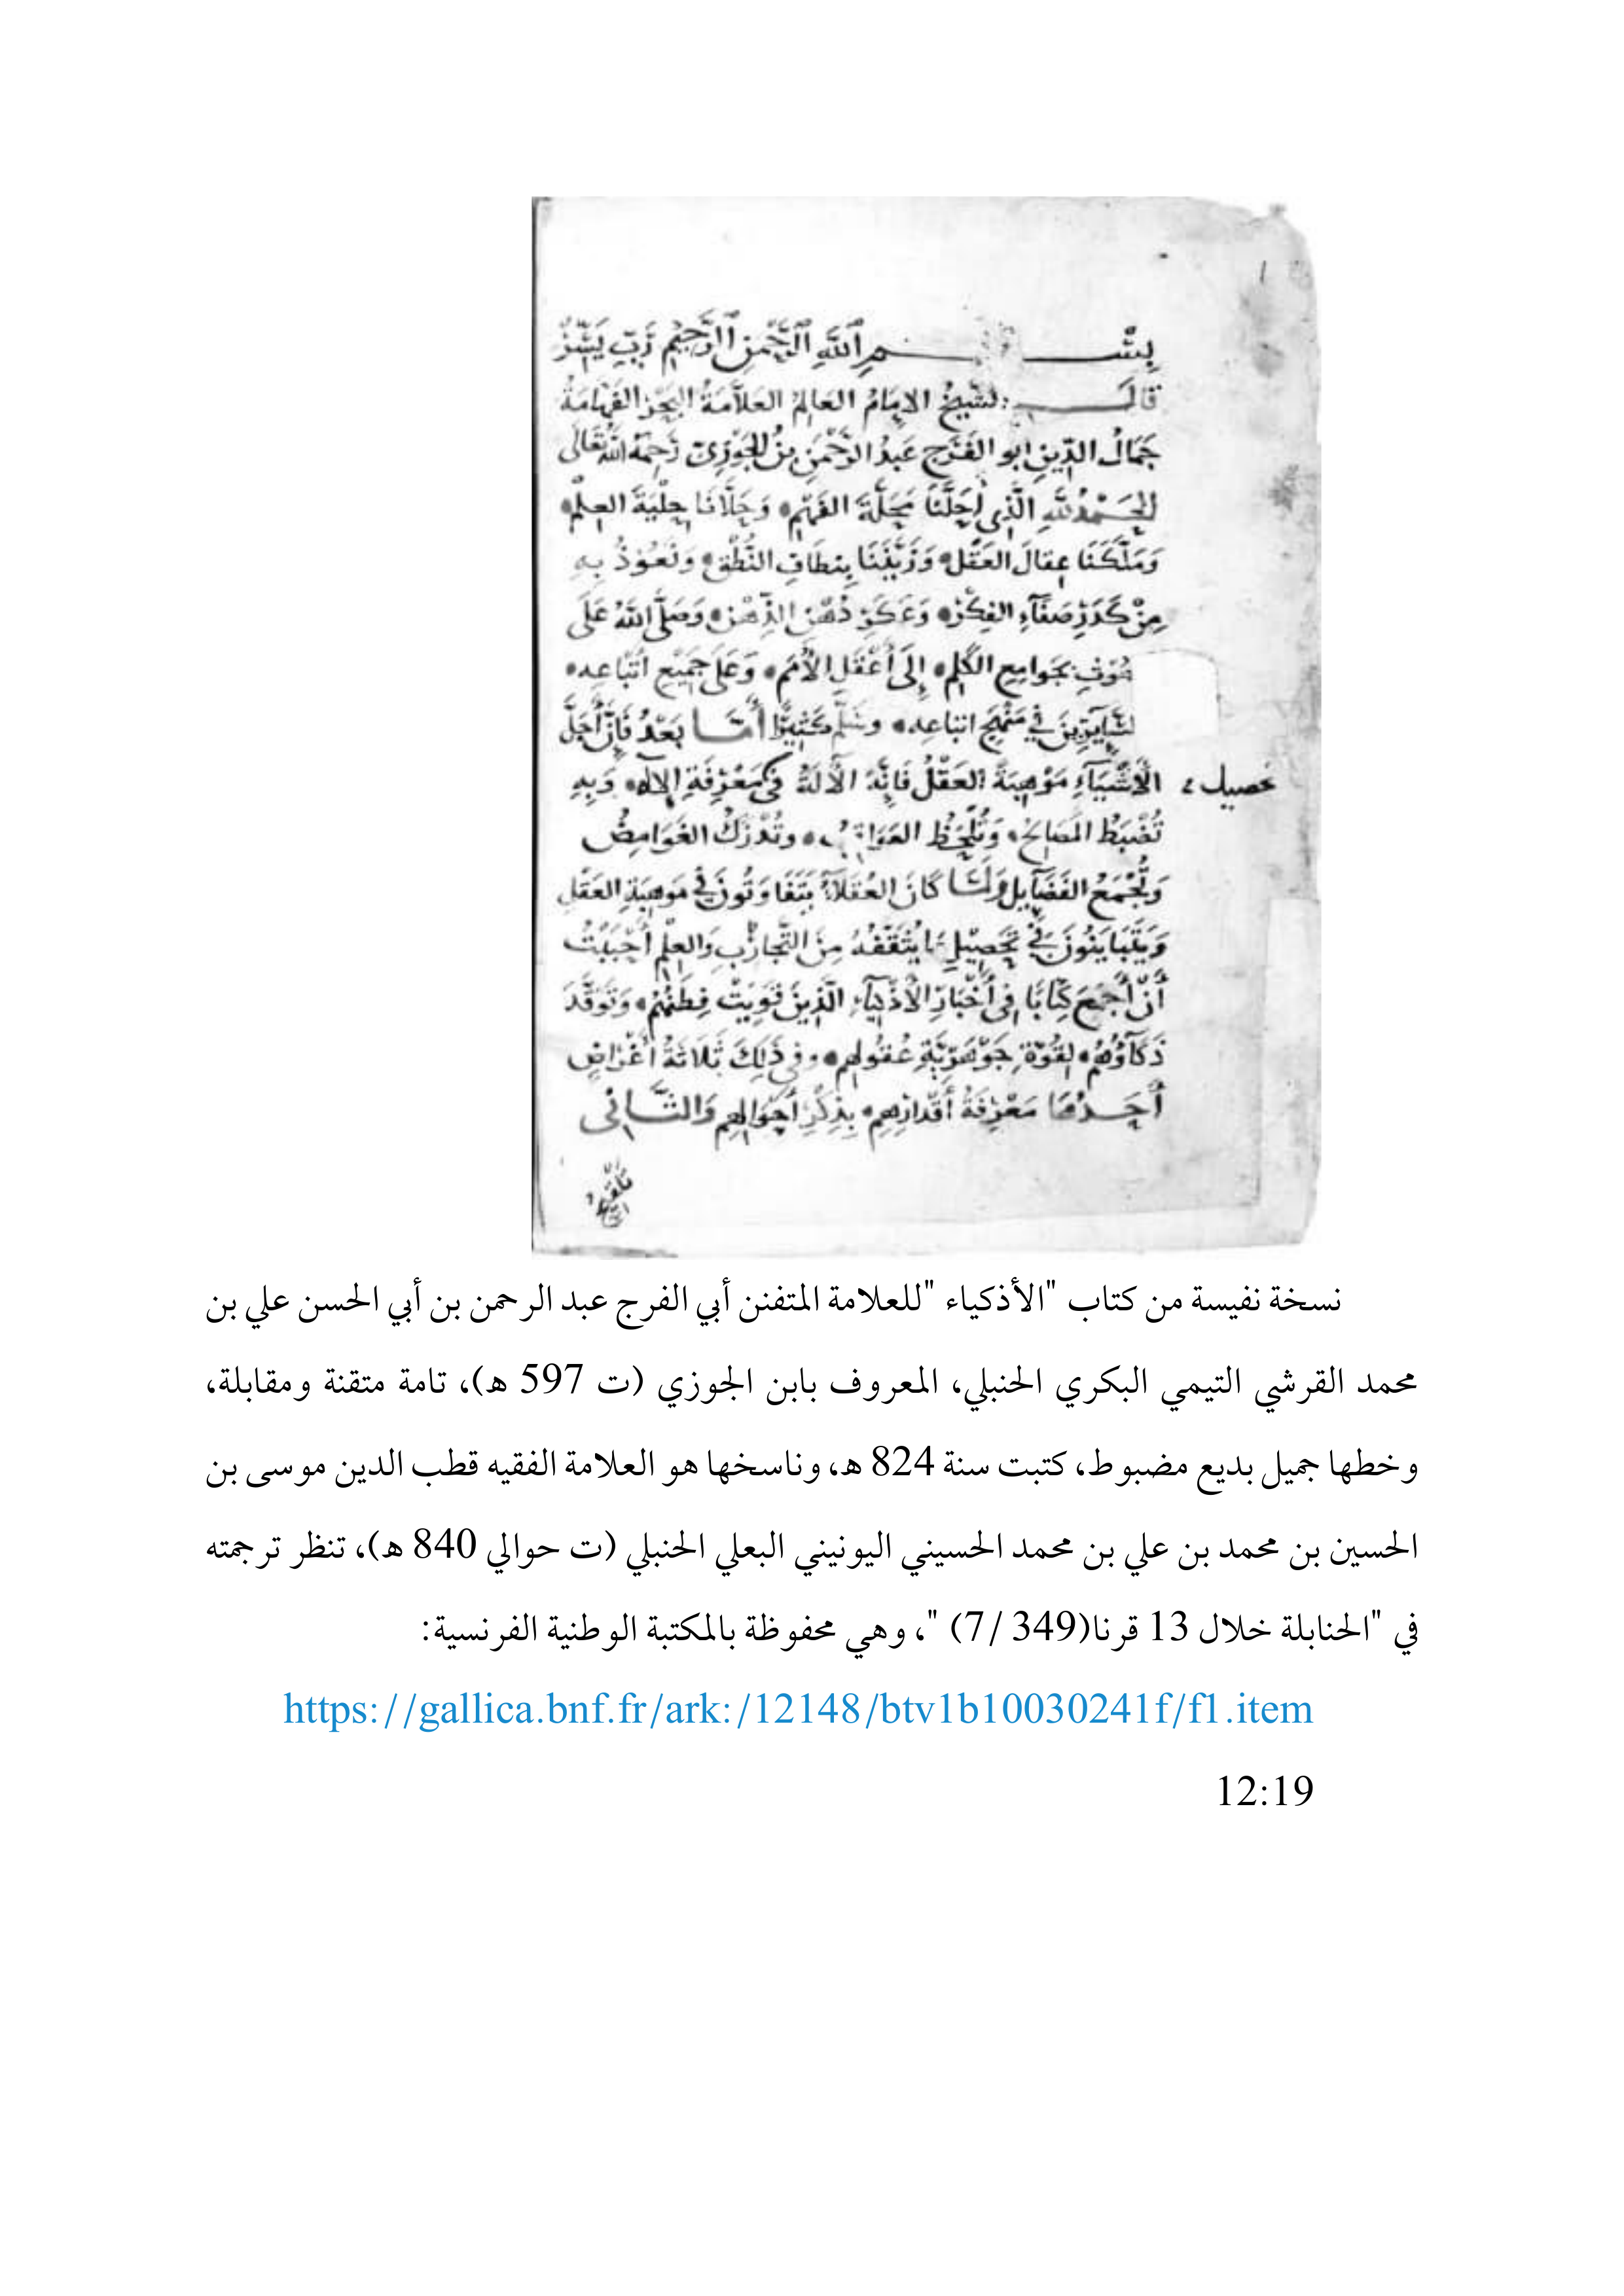 بِسْمِ ٱللَّهِ ٱلرَّحْمٰنِ ٱلرَّحِيْمِ رَبِّ يَسِّرْ
قَالَ الشَّيْخُ الامَامُ العَالِمُ العَلَّامَةُ البَحْرُ الفَهَّامَةُ
جَمَالُ الدِّينِ ابُو الفَرَجِ عَبْدُ الرَّحْمٰنِ بنُ الجَوْزِيّ رَحِمَهُ اللهُ تَعَالَى
الحَمْدُ للهِ الَّذِى أَحَلَّنَا مَحَلَّةَ الفَهْمِ وَحَلَّانَا حِلْيَةَ العِلْمِ
وَمَلَّكَنَا عِقالَ العَقْلِ وَزَيَّنَنَا بِنطَاقِ النُّطْقِ وَنَعُوْذُ بِهِ
مِنْ كَدَرِ صَفَآءِ الفِكْرِ وَعَكَرِ ذُهْنِ الذِّهْنِ وَصَلَّى اللهُ عَلَى
بجَوامِعِ الكَلِمِ إِلَى أَعْقَلِ الأُمَمِ وَعَلَى جَمِيْعِ أَتْبَاعِهِ
السَّايِرِينَ فِي مَنْهَجِ اتباعِهِ وسَلَّمَ كَثِيْرًا أَمَّا بَعْدُ فَإِنَّ أَجَلَّ
الأَشْيَآءِ مَوْهِبَةُ العَقْلُ فَإِنَّهُ الأٰلَةُ فِى مَعْرِفَةِ الإِلٰهِ وَبِهِ
تحصيل
تُضْبَطُ المَصَالِحُ وَتُلْحَظُ العَوَاقِبُ وتُدْرَكُ الغَوَامِضُ
وَتُجْمَعُ الفَضَآيِلُ وَلَمَّا كَانَ العُقَلَآءُ يَتَفَاوَتُونَ فِي مَوهِبَةِ العَقْلِ
وَيَتَبَايَنُونَ فِيْ تَحْصِيْلِ مَا يُثَقِّفُهُ مِنَ التَّجَارِبِ وَالعِلْمِ أَحْبَبْتُ
أَنْ أَجْمَعَ كِتَابًا فِى أَخْبَارِ الأَذْكِيَآءِ الَّذِينَ قَوِيَتْ فِطَنُهُمْ وَتَوَقَّدَ
ذَكَآؤُهُمْ لِقُوَّةِ جَوْهَرِيَّةِ عُقُولِهِم وفى ذَلِكَ ثَلَاثَةُ أَغْرَاضٍ
أَحَدُهَا مَعْرِفَةُ أَقْدَارِهِمِ بِذِكْرِ أَحْوَالِهِم وَالثَّانِى
نسخة نفيسة من كتاب "الأذكياء "للعلامة المتفنن أبي الفرج عبد الرحمن بن أبي الحسن علي بن
محمد القرشي التيمي البكري الحنبلي، المعروف بابن الجوزي (ت 597 هـ)، تامة متقنة ومقابلة،
وخطها جميل بديع مضبوط، كتبت سنة 824 هـ، وناسخها هو العلامة الفقيه قطب الدين موسى بن
الحسين بن محمد بن علي بن محمد الحسيني اليونيني البعلي الحنبلي (ت حوالي 840 هـ)، تنظر ترجمته
في "الحنابلة خلال 13 قرنا(349 /7) "، وهي محفوظة بالمكتبة الوطنية الفرنسية:
https://gallica.bnf.fr/ark:/12148/btv1b10030241f/f1.item
12:19